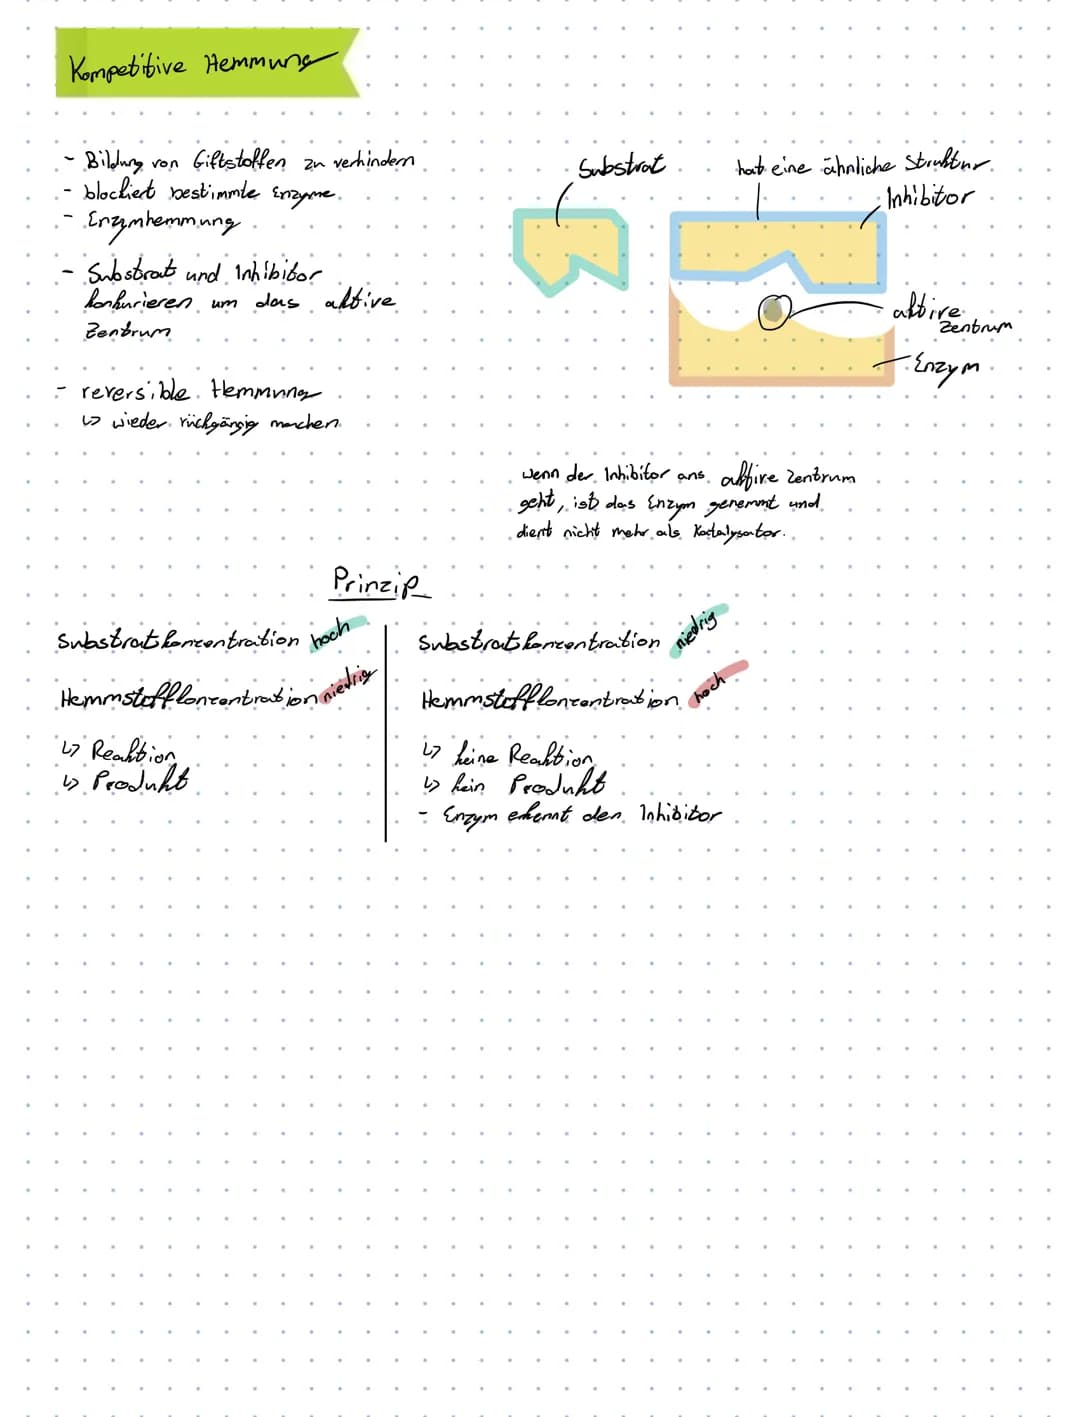 Kompetitive Hemmung
- Bildung von Giftstoffen zu verhindern
- blockiert bestimmte Enzyme
- Enzymhemmung
- Substrat und Inhibitor
konkurieren um das aktive
Zentrum
- reversible Hemmung
↳ wieder rückgängig machen
Substrat
hat eine ähnliche Struktur
Inhibitor
aktive
Zentrum
Enzym
wenn der Inhibitor ans aktive Zentrum
geht, ist das Enzym gehemmt und
dient nicht mehr als Katalysator.
Prinzip
Substratkonzentration hoch
Hemmstoffkonzentration niedrig
↳ Reaktion
↳ Produkt
Substratkonzentration niedrig
Hemmstoffkonzentration hoch
↳ keine Reaktion
↳ kein Produkt
- Enzym erkennt den Inhibitor